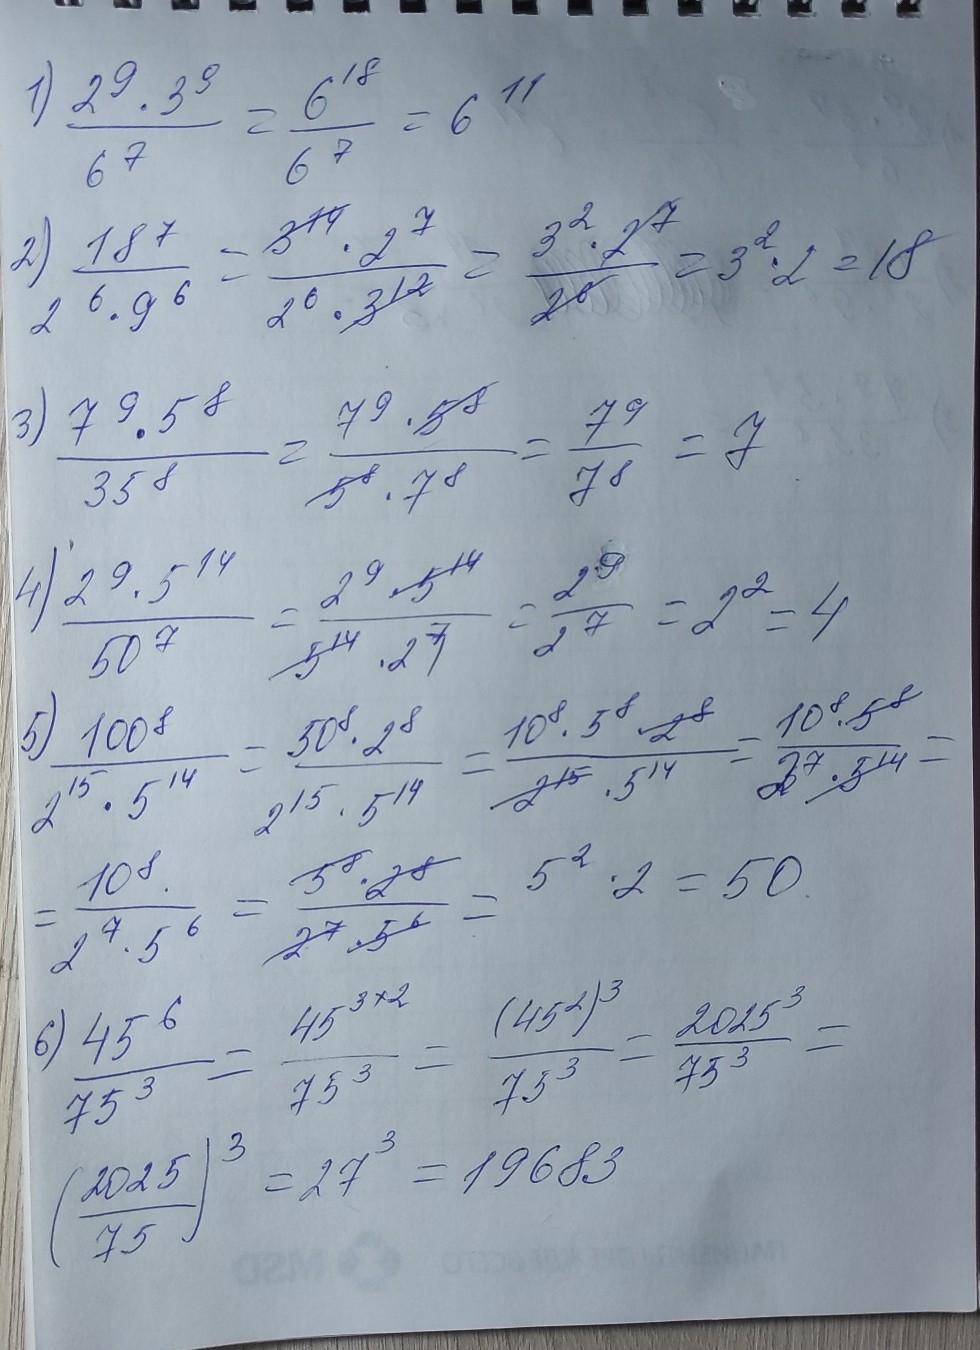 1) (2⁹·3⁹)/6⁷ = 6¹⁸/6⁷ = 6¹¹
2) 18⁷/(2⁶·9⁶) = (3¹⁴·2⁷)/(2⁶·3¹²) = (3²·2⁷)/2⁶ = 3²·2 = 18
3) (7⁹·5⁸)/35⁸ = (7⁹·5⁸)/(5⁸·7⁸) = 7⁹/7⁸ = 7
4) (2⁹·5¹⁴)/50⁷ = (2⁹·5¹⁴)/(5¹⁴·2⁷) = 2⁹/2⁷ = 2² = 4
5) 100⁸/(2¹⁵·5¹⁴) = (50⁸·2⁸)/(2¹⁵·5¹⁴) = (10⁸·5⁸·2⁸)/(2¹⁵·5¹⁴) = (10⁸·5⁸)/(2⁷·5¹⁴) =
= 10⁸·/(2⁷·5⁶) = (5⁸·2⁸)/(2⁷·5⁶) = 5²·2 = 50.
6) 45⁶/75³ = 45³ˣ²/75³ = (45²)³/75³ = 2025³/75³ =
(2025/75)³ = 27³ = 19683